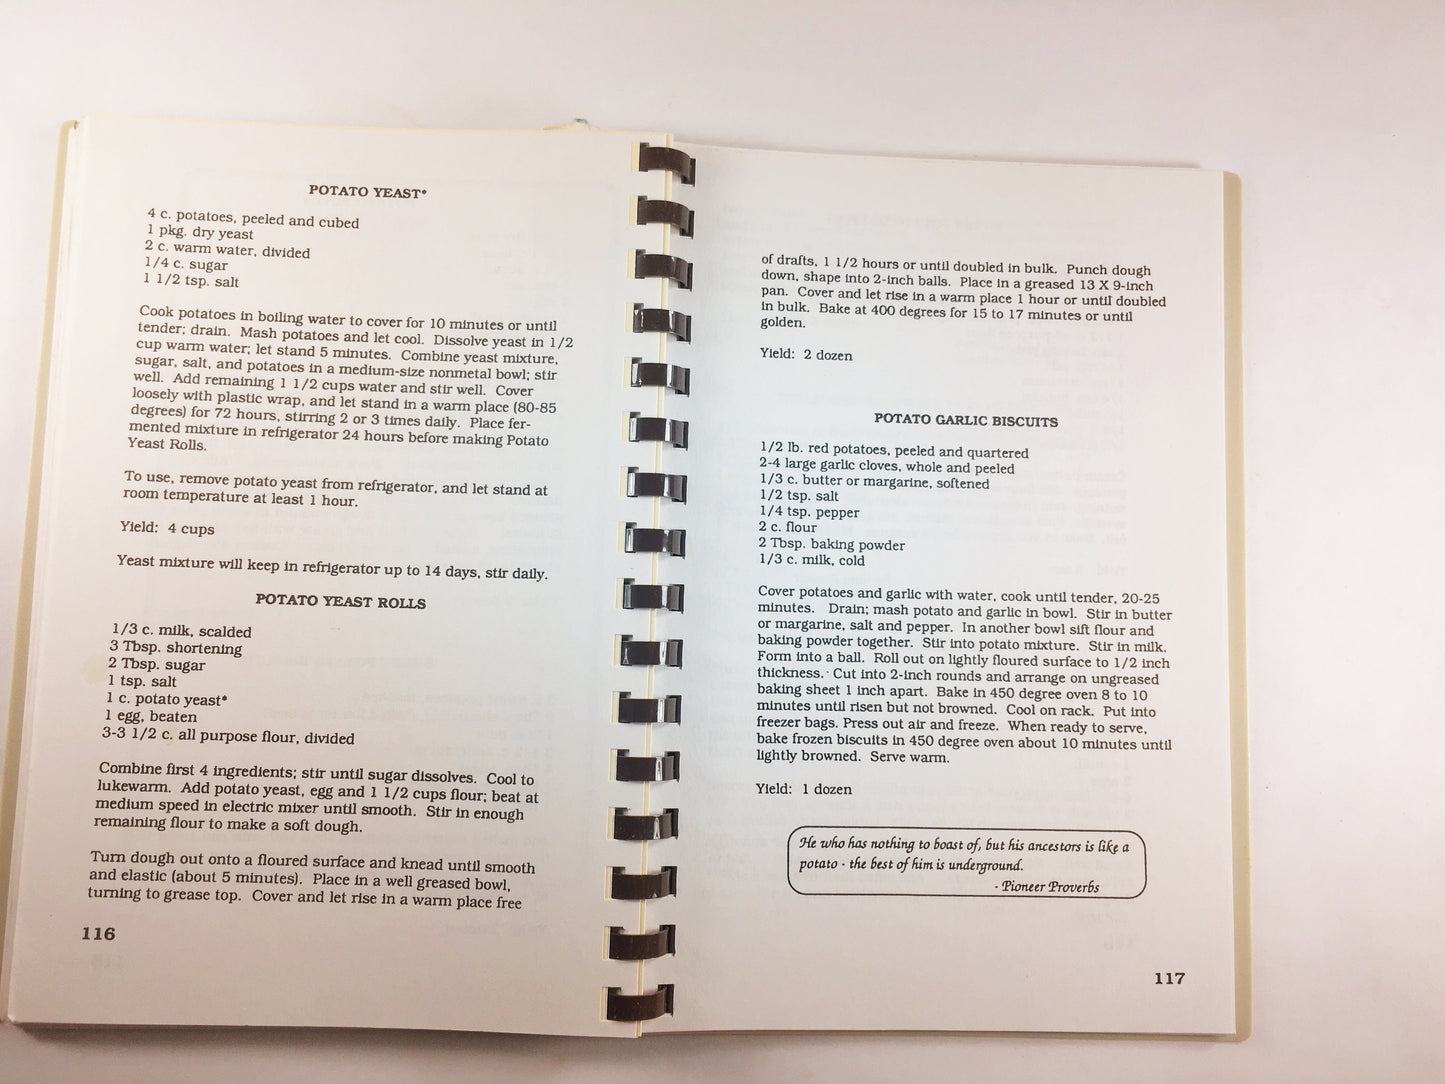 POTATO YEAST*
4 c. potatoes, peeled and cubed
1 pkg. dry yeast
2 c. warm water, divided
1/4 c. sugar
1 1/2 tsp. salt
Cook potatoes in boiling water to cover for 10 minutes or until
tender; drain. Mash potatoes and let cool. Dissolve yeast in 1/2
cup warm water; let stand 5 minutes. Combine yeast mixture,
sugar, salt, and potatoes in a medium-size nonmetal bowl; stir
well. Add remaining 1 1/2 cups water and stir well. Cover
loosely with plastic wrap, and let stand in a warm place (80-85
degrees) for 72 hours, stirring 2 or 3 times daily. Place fer-
mented mixture in refrigerator 24 hours before making Potato
Yeast Rolls.
To use, remove potato yeast from refrigerator, and let stand at
room temperature at least 1 hour.
Yield: 4 cups
Yeast mixture will keep in refrigerator up to 14 days, stir daily.
POTATO YEAST ROLLS
1/3 c. milk, scalded
3 Tbsp. shortening
2 Tbsp. sugar
1 tsp. salt
1 c. potato yeast*
1 egg, beaten
3-3 1/2 c. all purpose flour, divided
Combine first 4 ingredients; stir until sugar dissolves. Cool to
lukewarm. Add potato yeast, egg and 1 1/2 cups flour; beat at
medium speed in electric mixer until smooth. Stir in enough
remaining flour to make a soft dough.
Turn dough out onto a floured surface and knead until smooth
and elastic (about 5 minutes). Place in a well greased bowl,
turning to grease top. Cover and let rise in a warm place free
116
of drafts, 1 1/2 hours or until doubled in bulk. Punch dough
down, shape into 2-inch balls. Place in a greased 13 X 9-inch
pan. Cover and let rise in a warm place 1 hour or until doubled
in bulk. Bake at 400 degrees for 15 to 17 minutes or until
golden.
Yield: 2 dozen
POTATO GARLIC BISCUITS
1/2 lb. red potatoes, peeled and quartered
2-4 large garlic cloves, whole and peeled
1/3 c. butter or margarine, softened
1/2 tsp. salt
1/4 tsp. pepper
2 c. flour
2 Tbsp. baking powder
1/3 c. milk, cold
Cover potatoes and garlic with water, cook until tender, 20-25
minutes. Drain; mash potato and garlic in bowl. Stir in butter
or margarine, salt and pepper. In another bowl sift flour and
baking powder together. Stir into potato mixture. Stir in milk.
Form into a ball. Roll out on lightly floured surface to 1/2 inch
thickness. Cut into 2-inch rounds and arrange on ungreased
baking sheet 1 inch apart. Bake in 450 degree oven 8 to 10
minutes until risen but not browned. Cool on rack. Put into
freezer bags. Press out air and freeze. When ready to serve,
bake frozen biscuits in 450 degree oven about 10 minutes until
lightly browned. Serve warm.
Yield: 1 dozen
He who has nothing to boast of, but his ancestors is like a
potato - the best of him is underground.
- Pioneer Proverbs
117